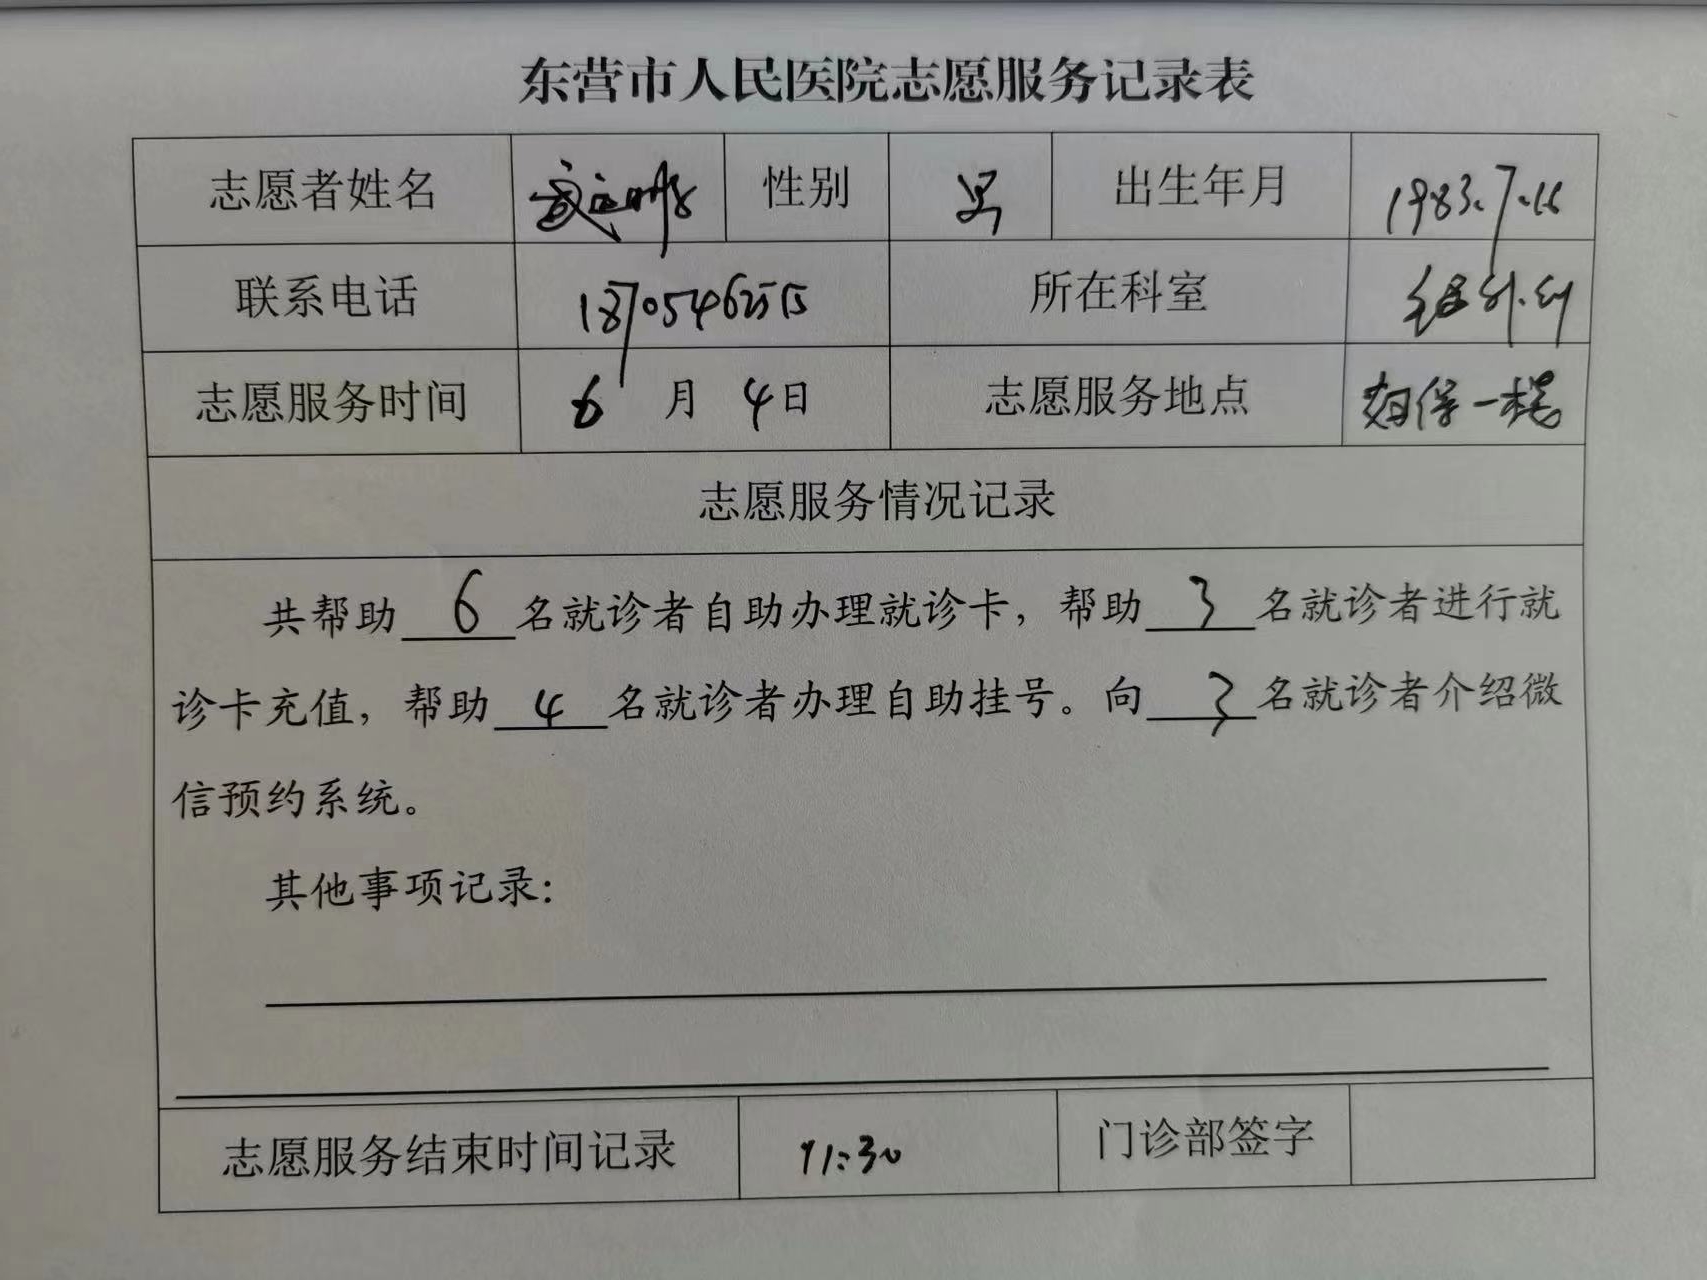 东营市人民医院志愿服务记录表
志愿者姓名 性别 男 出生年月 1983.7.16
联系电话 所在科室
志愿服务时间 6 月 4日 志愿服务地点 妇保一楼
志愿服务情况记录
共帮助 6 名就诊者自助办理就诊卡，帮助 3 名就诊者进行就
诊卡充值，帮助 4 名就诊者办理自助挂号。向 3 名就诊者介绍微
信预约系统。
其他事项记录：
志愿服务结束时间记录 11:30 门诊部签字